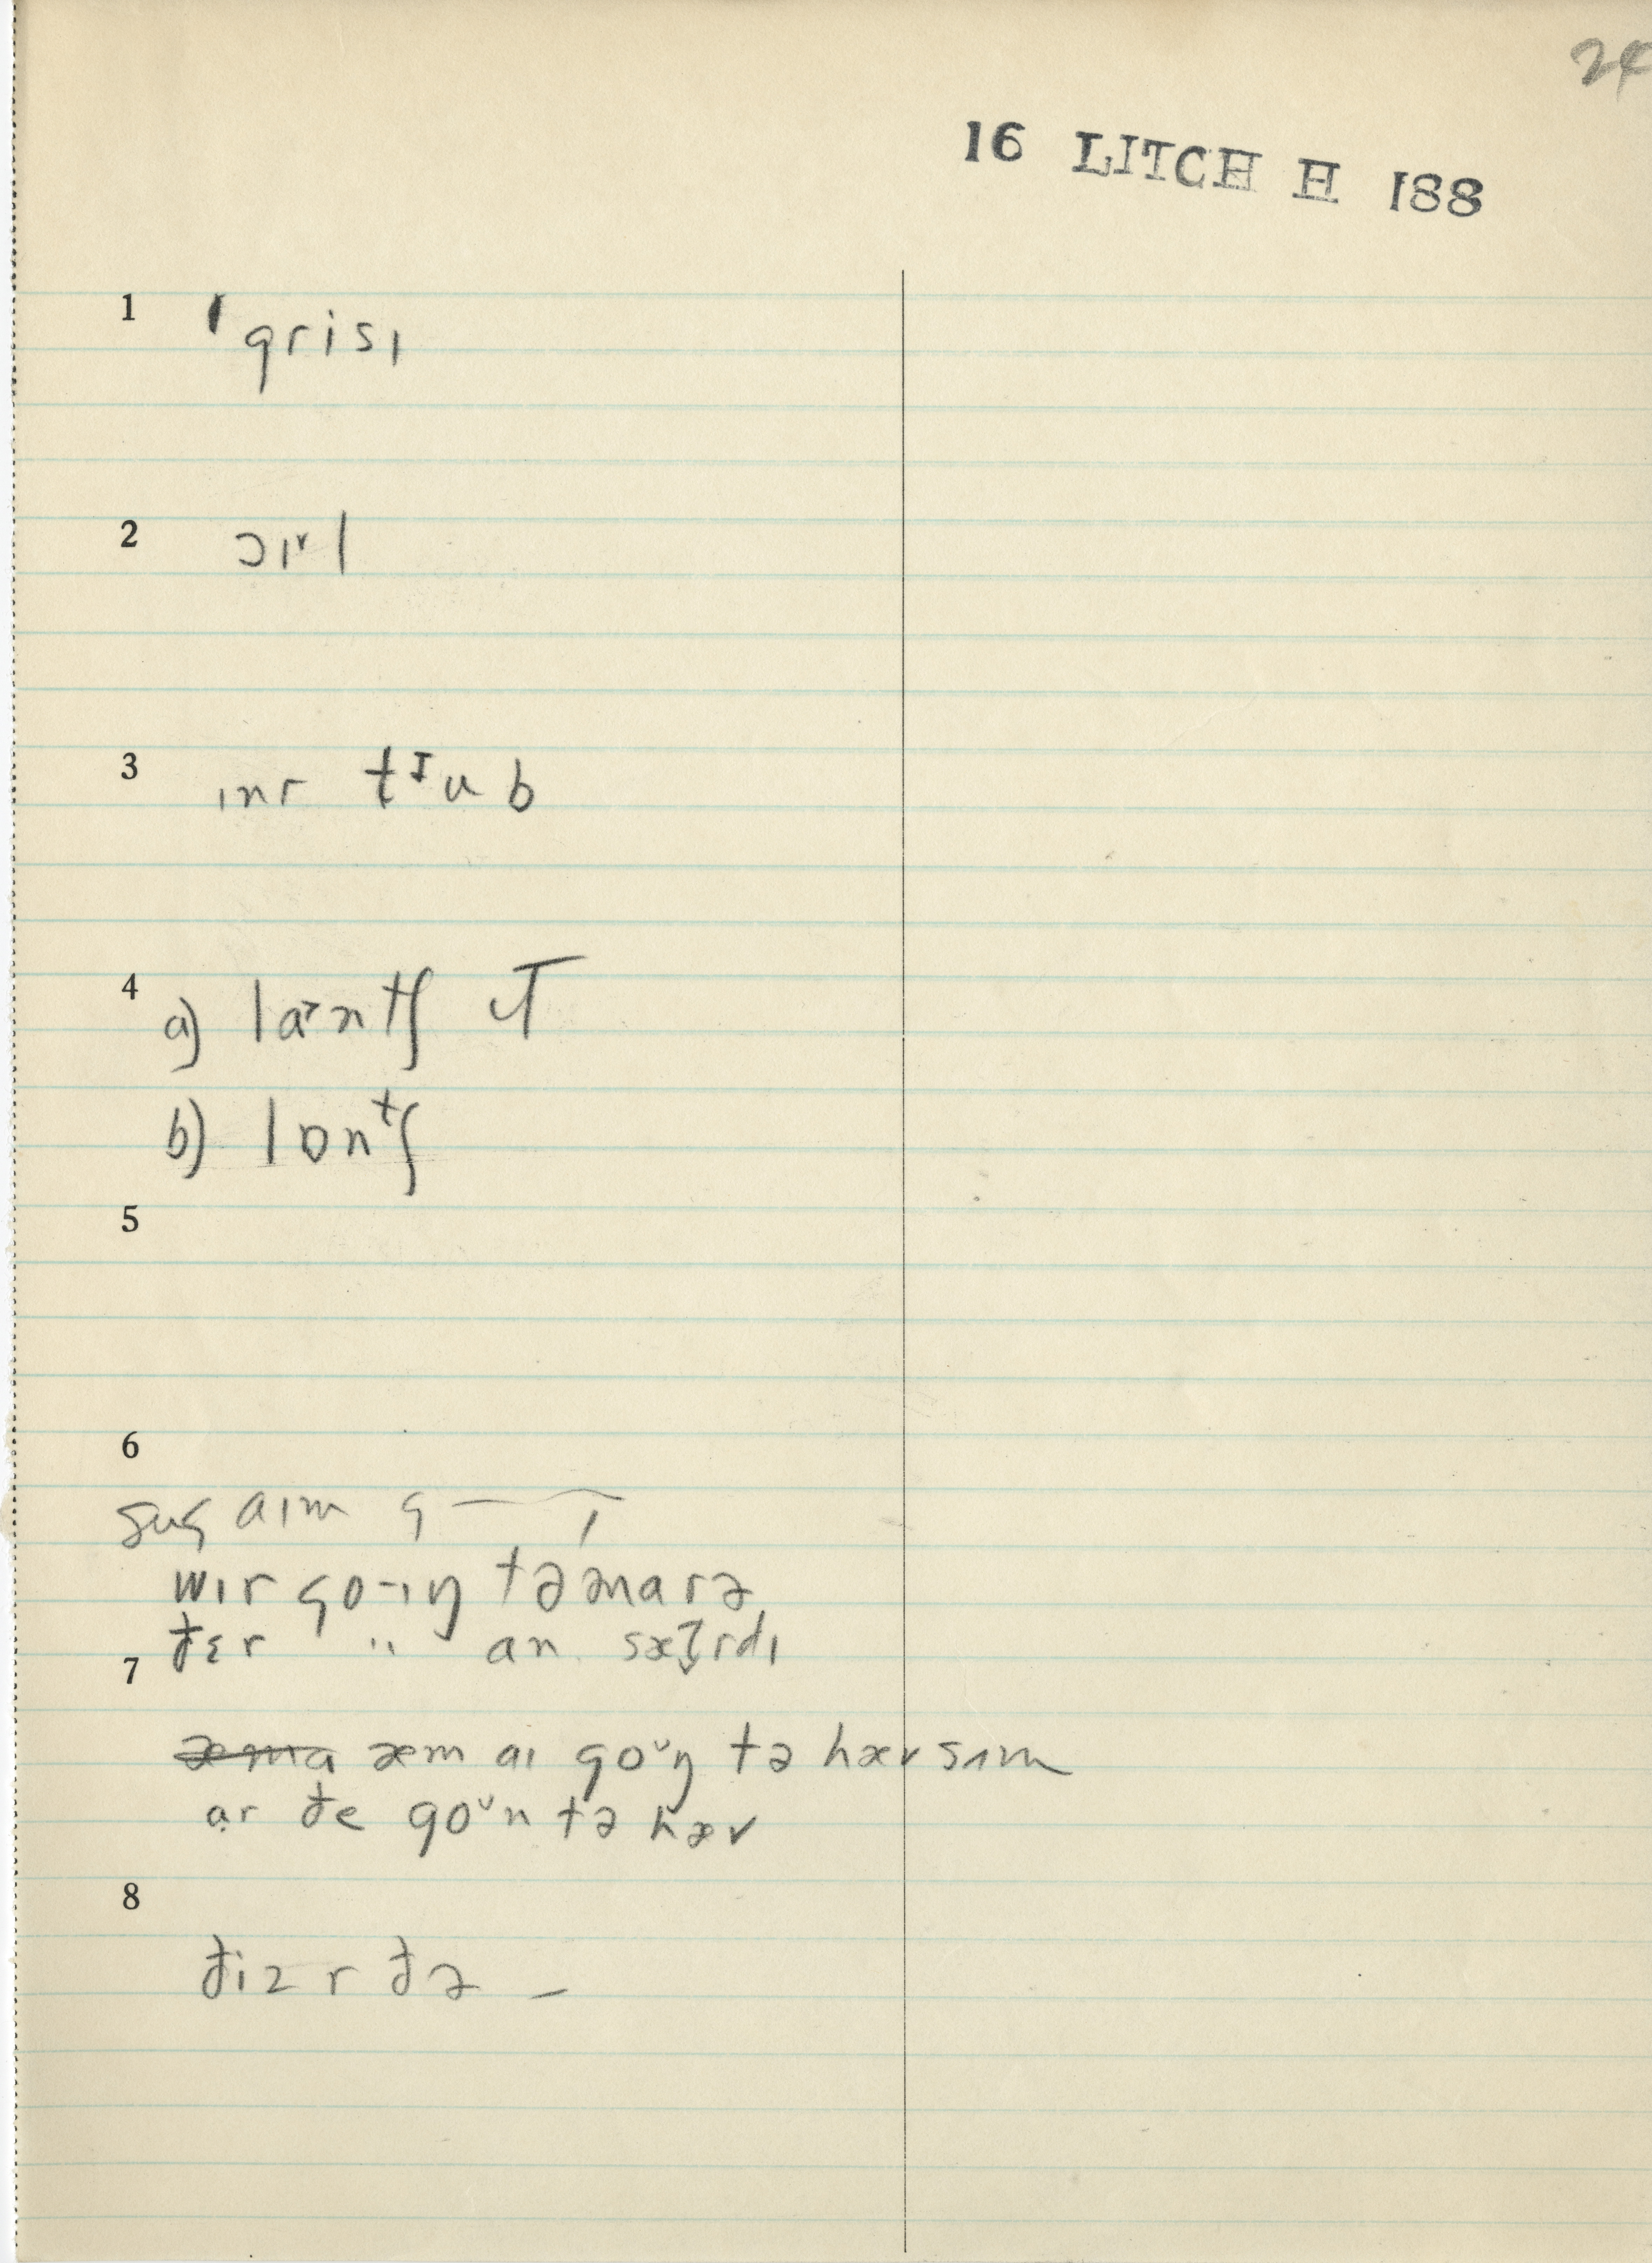 24
16 LITCH H 188
1 ˈgrisɪ
2 ɔɪ˅l
3 ɪnr tᴵub
4 a) lantʃ
b) lɒnᵗʃ
5
6
aɪm g—
wɪr go-ɪŋ təmarə
7 ðɛr " an
æma æm aɪ go˅ŋ tə hæv sʌm
ar ðe go˅n tə hæv
8
ðiz r ðə –